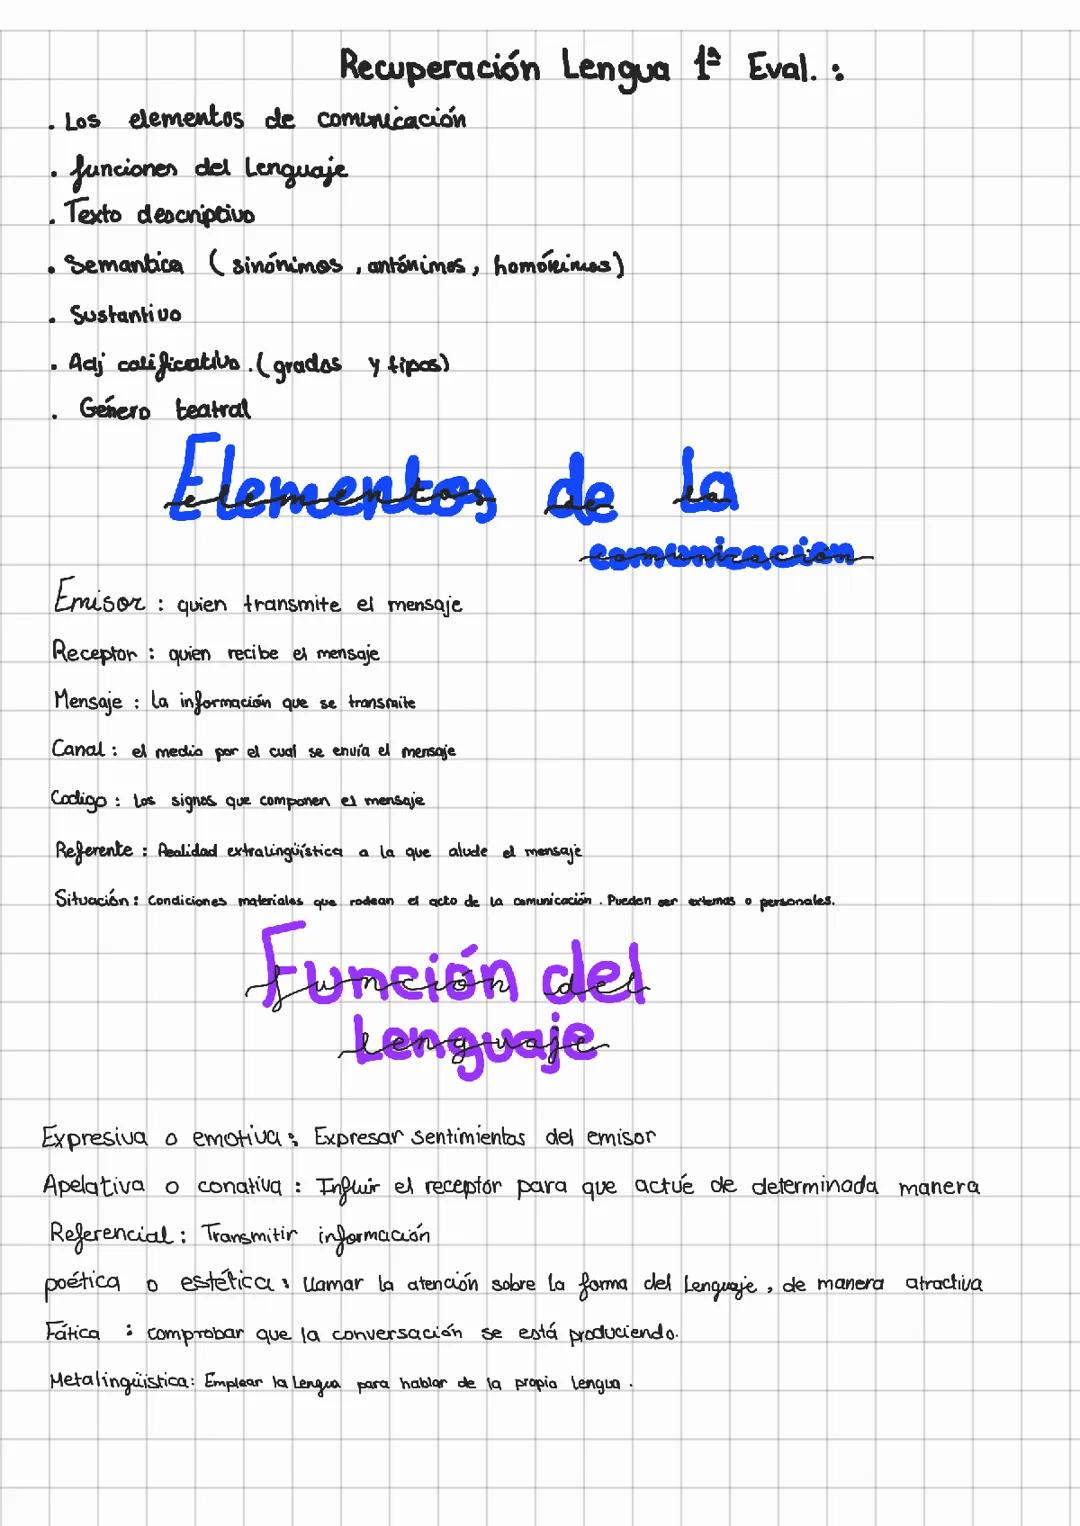 Recuperación Lengua 1ª Eval. :
. Los elementos de comunicación
. funciones del Lenguaje
. Texto descriptivo
. Semantica ( sinónimos , antónimos , homónimos )
. Sustantivo
. Adj calificativo . ( grados y tipos )
. Género teatral
Elementos de la
comunicación
Emisor : quien transmite el mensaje
Receptor : quien recibe el mensaje
Mensaje : La información que se transmite
Canal : el medio por el cual se envía el mensaje
Codigo : Los signos que componen el mensaje
Referente : Realidad extralingüística a la que alude el mensaje
Situación : Condiciones materiales que rodean el acto de la comunicación . Pueden ser externas o personales.
Función del
Lenguaje
Expresiva o emotiva : Expresar sentimientos del emisor
Apelativa o conativa : Influir el receptor para que actúe de determinada manera
Referencial : Transmitir información
poética o estética : llamar la atención sobre la forma del Lenguaje , de manera atractiva
Fática : comprobar que la conversación se está produciendo.
Metalingüistica : Emplear la Lengua para hablar de la propia lengua .